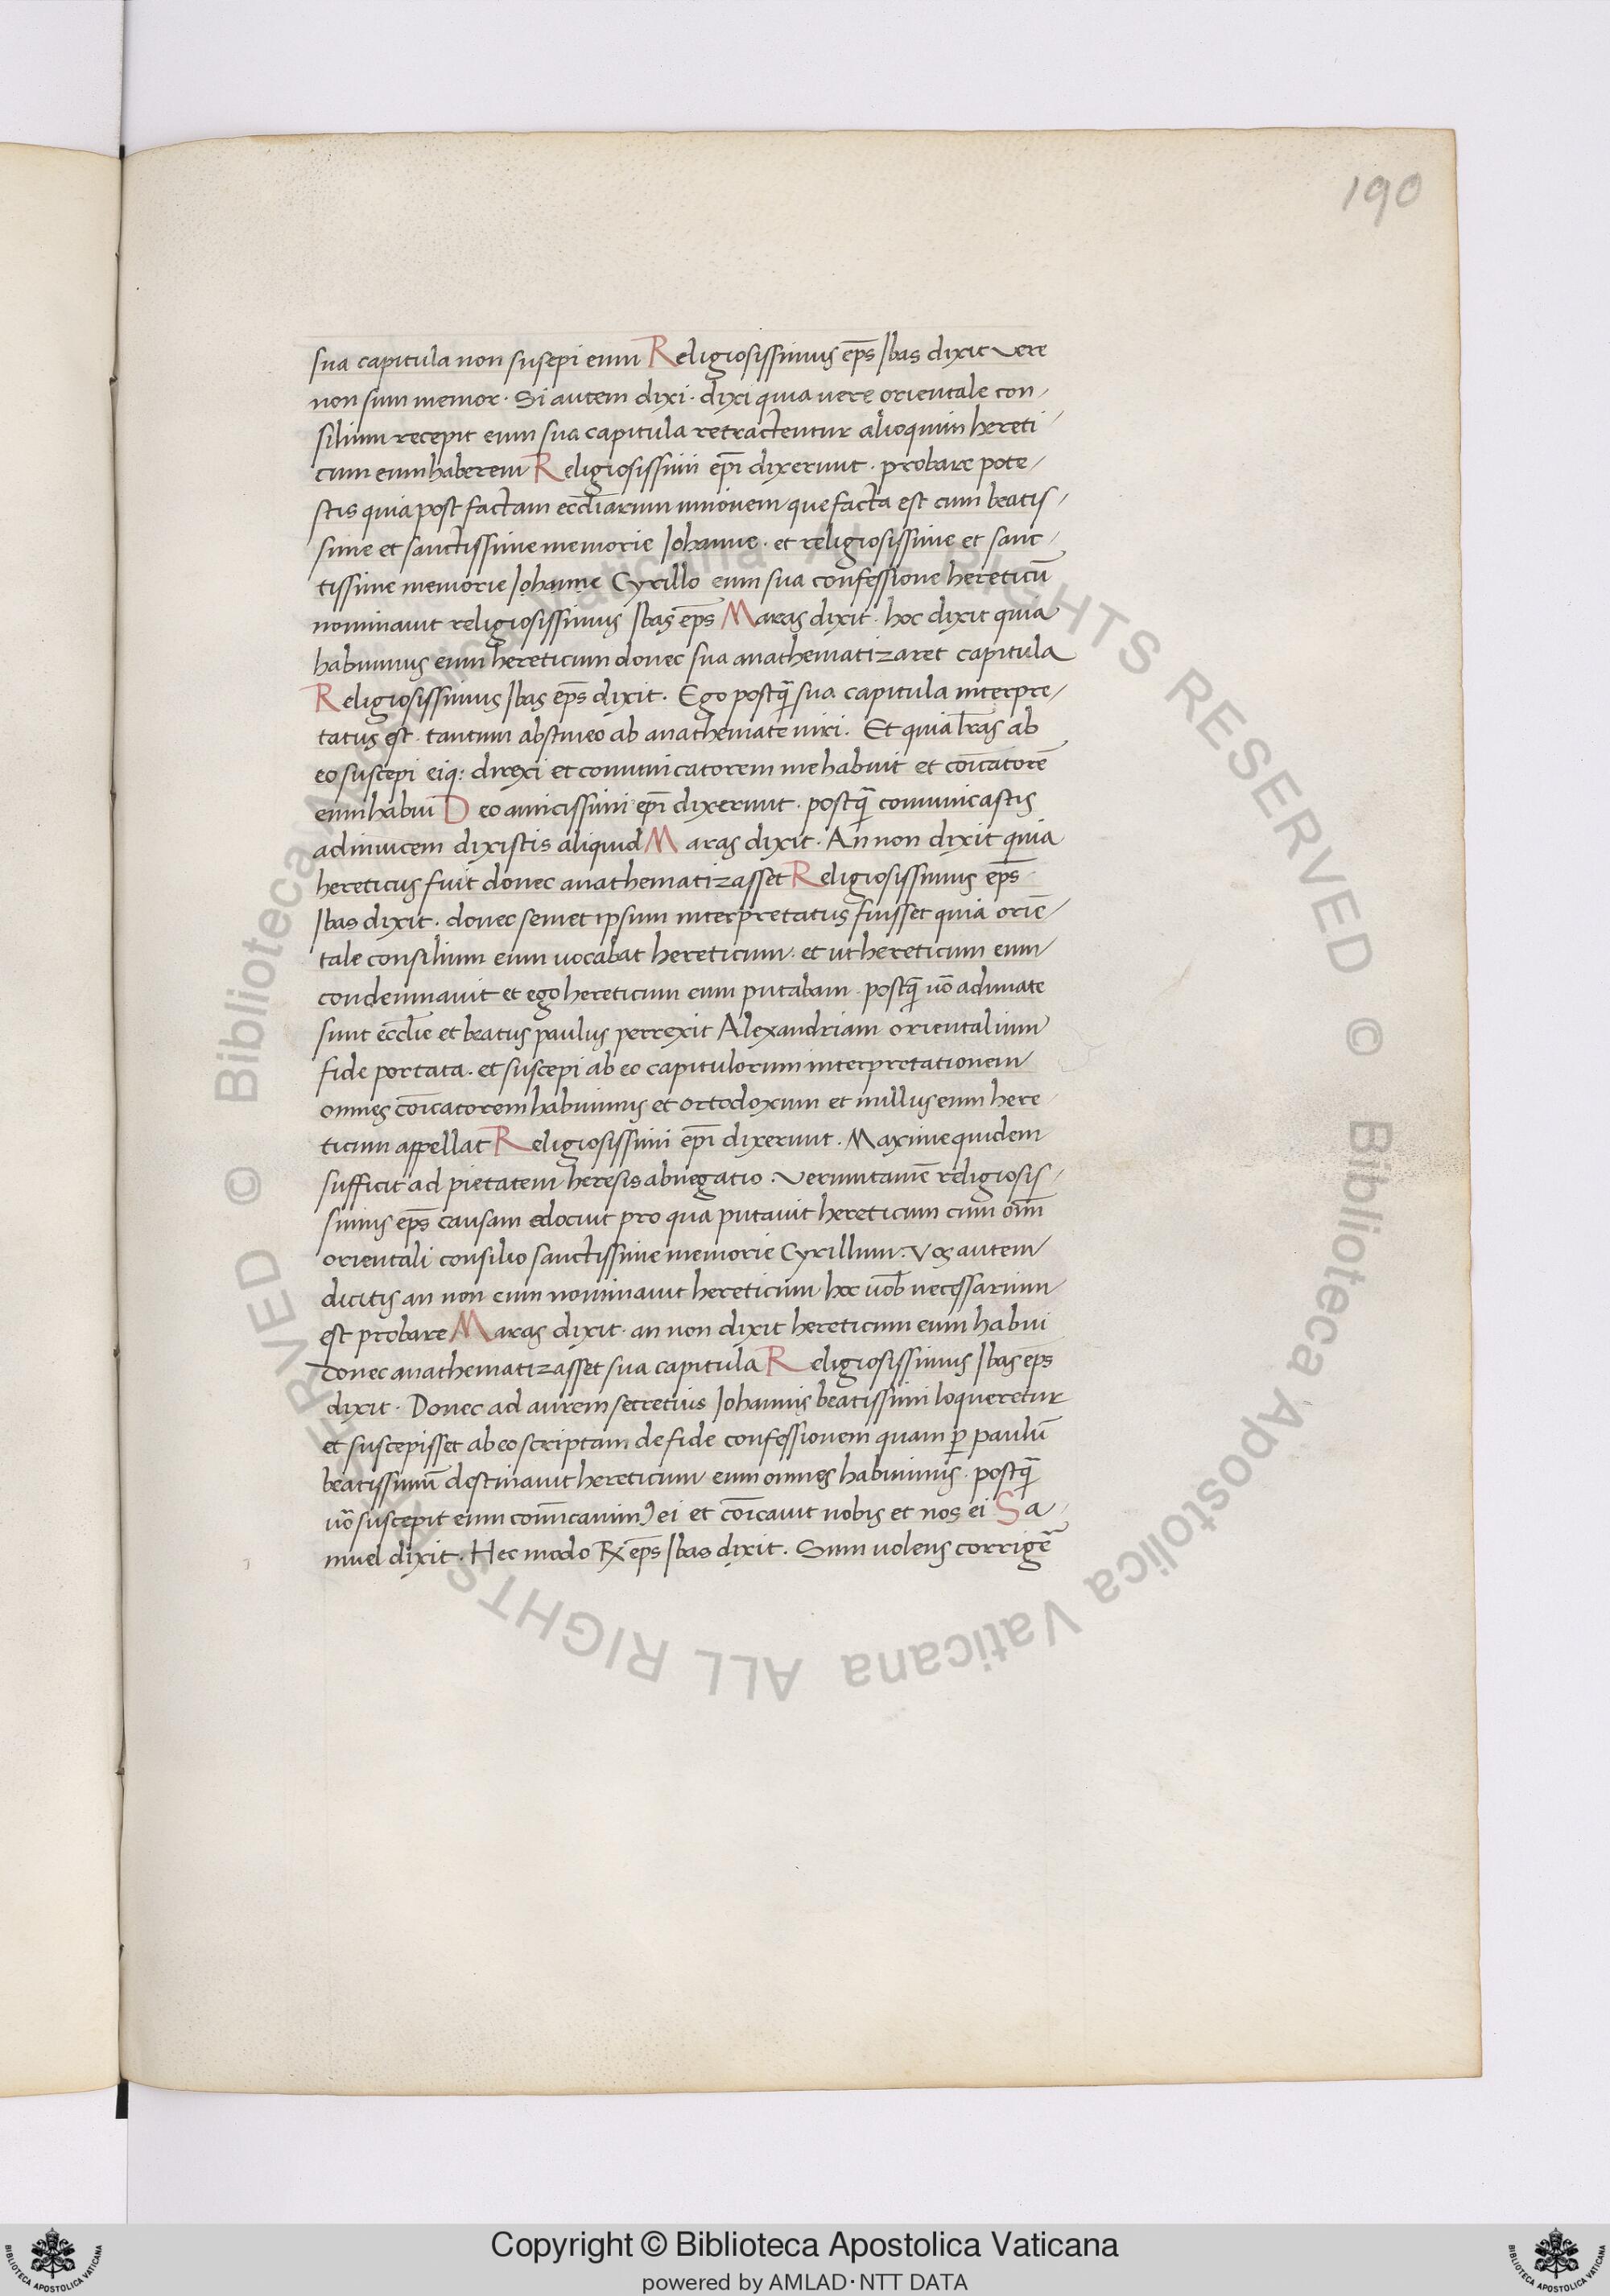 190
sua capitula non suscpi eum Religiosissimus ep̄s Ibas dixit vere
non sum memor · Si autem dixi · dixi quia vere orientale con-
silium recepit eum sua capitula retractentur alioquin hereti-
cum eum haberem Religiosissimi ep̄i dixerunt · probare pote-
stis quia post factam eccl̄iarum unionem que facta est cum beatis-
sime et sanctissime memorie Iohanne · et religiosissime et sanc-
tissime memorie Iohanne Cyrillo eum sua confessione hereticū
nominauit religiosissimus Ibas ep̄s Maras dixit · hoc dixit quia
habuimus eum hereticum donec sua anathematizaret capitula
Religiosissimus Ibas ep̄s dixit. Ego postq̄ sua capitula interpre-
tatus est · tantum abstineo ab anathemate viri. Et quia l̄ras ab
eo suscepi eiq: direxi et comunicatorem me habuit et cōicatorē
eum habui Deo amicissimi ep̄i dixerunt · postq̄ comunicastis
adinuicem dixistis aliquid Maras dixit · An non dixit quia
hereticus fuit donec anathematizasset Religiosissimus ep̄s
Ibas dixit · donec semet ipsum interpretatus fuisset quia oriē-
tale consilium eum uocabat hereticum · et ut hereticum eum
condemnauit et ego hereticum eum putabam · postq̄ uō adunate
sunt eccl̄ie et beatus paulus perrexit Alexandriam orientalium
fide portata · et suscepi ab eo capitulorum interpretationem
omnes cōicatorem habuimus et ortodoxum et nullus eum here-
ticum appellat Religiosissimi ep̄i dixerunt · Maxime quidem
sufficit ad pietatem heresis abnegatio · Verumtamē religiosis-
simus ep̄s causam edocuit pro qua putauit hereticum cum om̄i
orientali consilio sanctissime memorie Cyrillum · Vos autem
dicitis an non eum nominauit hereticum hoc uob̄ necessarium
est probare Maras dixit · an non dixit hereticum eum habui
donec anathematizasset sua capitula Religiosissimus Ibas ep̄s
dixit · Donec ad aurem secretius Iohannis beatissimi loqueretur
et suscepisset ab eo scriptam de fide confessionem quam p̱ paulū
beatissimū destinauit hereticum eum omnes habuimus · postq̄
uō suscepit eum com̄icauimꝰ ei et cōicauit nobis et nos ei Sa-
muel dixit · Hec modo R̄ ep̄s Ibas dixit. Sum uolens corrigē
© Biblioteca Apostolica Vaticana ALL RIGHTS RESERVED © Biblioteca Apostolica Vaticana ALL RIGHTS RESERVED
Copyright © Biblioteca Apostolica Vaticana
powered by AMLAD·NTT DATA
BIBLIOTECA APOSTOLICA VATICANA
BIBLIOTECA APOSTOLICA VATICANA